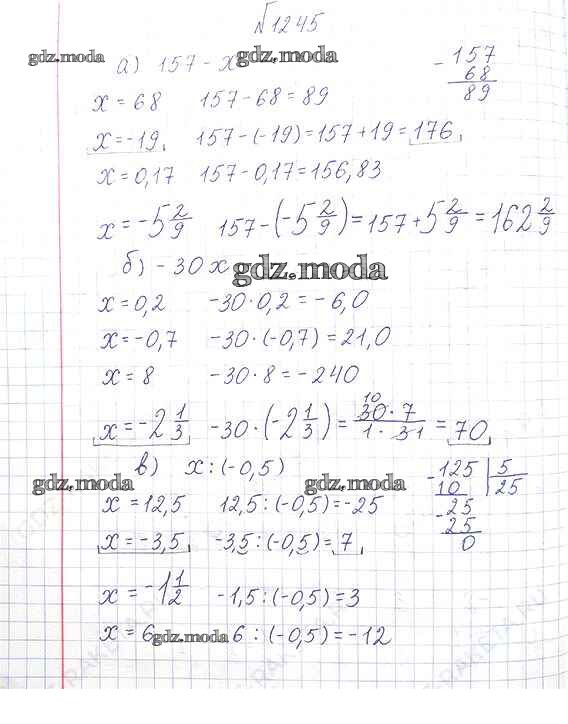 №1245
gdz.moda
а) 157 - x
gdz.moda
- 157
68
89
x = 68 157 - 68 = 89
x = -19 157 - (-19) = 157 + 19 = 176
x = 0,17 157 - 0,17 = 156,83
x = -5 2/9 157 - (-5 2/9) = 157 + 5 2/9 = 162 2/9
б) - 30 x
gdz.moda
x = 0,2 -30 · 0,2 = -6,0
x = -0,7 -30 · (-0,7) = 21,0
x = 8 -30 · 8 = -240
x = -2 1/3 -30 · (-2 1/3) = 10 30 · 7 / 1 · 31 = 70
в) x : (-0,5)
gdz.moda
gdz.moda
- 125 | 5
10 25
- 25
25
0
x = 12,5 12,5 : (-0,5) = -25
x = -3,5 -3,5 : (-0,5) = 7
x = -1 1/2 -1,5 : (-0,5) = 3
x = 6 6 : (-0,5) = -12
gdz.moda